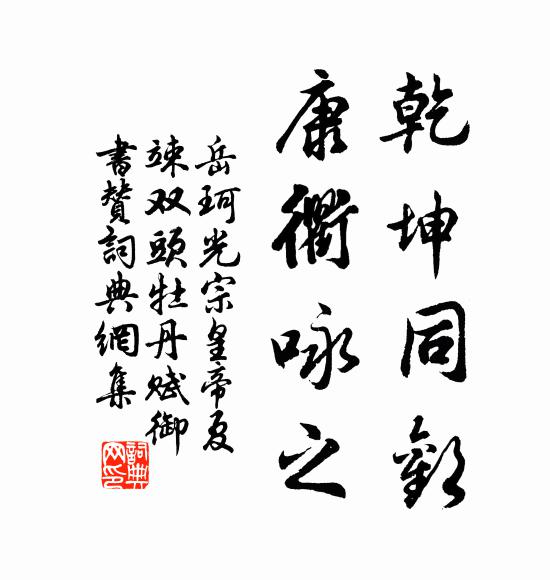 乾坤同歡
康衢咏之
岳珂光宗皇帝夏
竦双頭牡丹賦御
書贊詞典網集
詞典网印